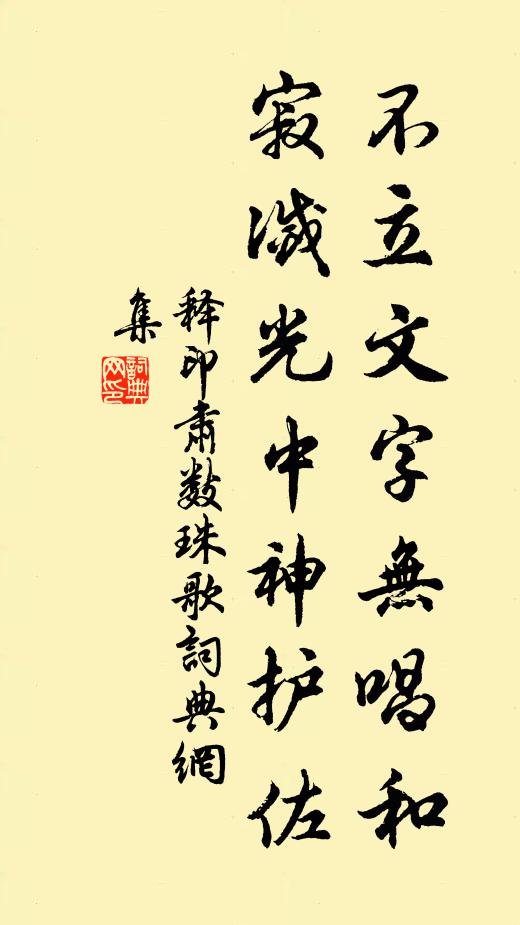 不立文字無唱和
寂滅光中神护佑
释印肃数珠歌詞典網
集
詞典
网印